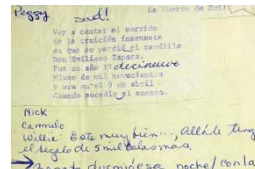 Peggy
Sad!
La Muerte de Emil
Voy a cantar el corrido
de la traición insensata
en que se perdió el caudillo
Don Emiliano Zapata.
Fue el año 19 diecinueve
Mismo de mil novecientos
y era el 9 de abril
Cuando sucedió el suceso.
Nick
Carmelo
Willie: Este muy bien..., Allá le teng
el regalo de 5 mil balas mas.
noche / con la